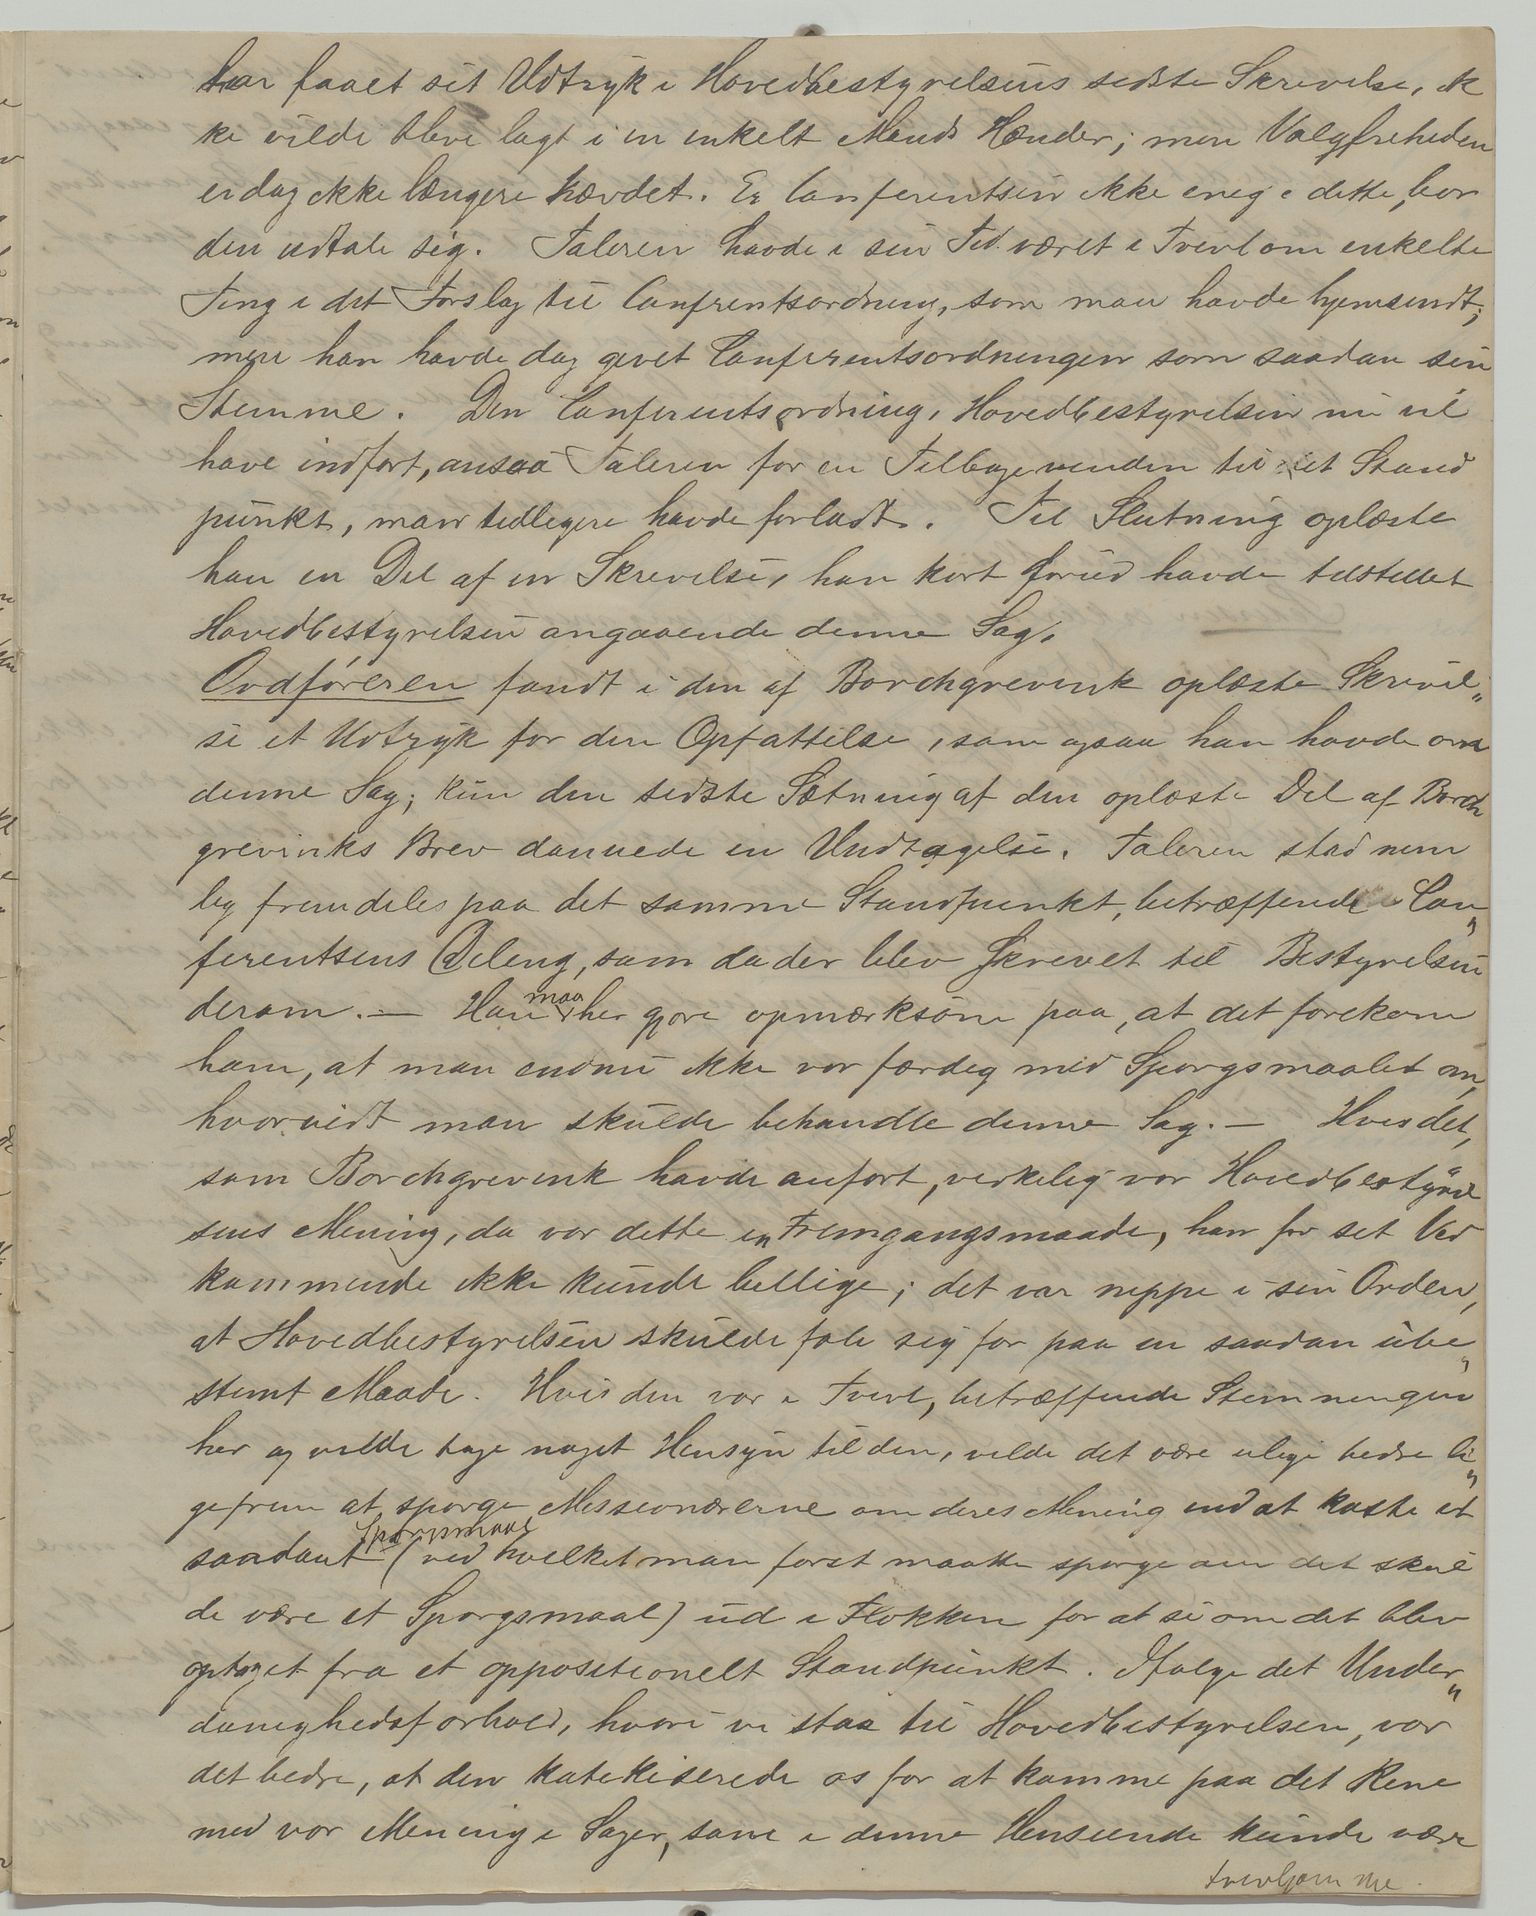 har faaet sit Udtryk i Hovedbestyrelsens sidste Skrivelse, ik
ke vilde blive lagt i en enkelt Mands Hænder; men Valgfriheden
er dog ikke længere hævdet. Er Conferentsen ikke enig i dette, bør
den udtale sig. Taleren havde i sin Tid været i Tvivl om enkelte
Ting i det Forslag til Conferentsordning, som man havde hjemsendt;
men han havde dog givet Conferentsordningen som saadan sin
Stemme. Den Conferentsordning, Hovedbestyrelsen nu vil
have indført, ansaa Taleren for en Tilbagevenden til et Stand
punkt, man tidligere havde forladt. Til Slutning oplæste
han en Del af en Skrivelse, han kort forud havde tilstillet
Hovedbestyrelsen angaaende denne Sag.
Ordføreren fandt i den af Borchgrevink oplæste Skrivel„
se et Udtryk for den Opfattelse, som ogsaa han havde om
denne Sag; kun den sidste Sætning af den oplæste Del af Borch
grevinks Brev dannede en Undtagelse. Taleren stod nem
lig fremdeles paa det samme Standpunkt, betræffende Con„
ferentsens Deling, som da der blev skrevet til Bestyrelsen
derom. — Han maa her gjøre opmærksom paa, at det forekom
ham, at man endnu ikke var færdig med Spørgsmaalet om,
hvorvidt man skulde behandle denne Sag. — Hvis det,
som Borchgrevink havde anført, virkelig var Hovedbestyrel
sens Mening, da var dette en Fremgangsmaade, han for sit Ved
kommende ikke kunde billige; det var neppe i sin Orden,
at Hovedbestyrelsen skulde føle sig for paa en saadan ube„
stemt Maade. Hvis den var i Tvivl, betræffende Stemningen
her og vilde tage noget Hensyn til den, vilde det være ulige bedre li„
gefrem at spørge Missionærerne om deres Mening end at kaste et
saadant Spørgsmaal (ved hvilket man først maatte spørge om det skul
de være et Spørgsmaal) ud i Flokken for at se om det blev
optaget fra et oppositionelt Standpunkt. Ifølge det Under„
danighedsforhold, hvori vi staa til Hovedbestyrelsen, var
det bedre, at den katekiserede os for at komme paa det Rene
med vor Mening i Sager, som i denne Henseende kunde være
tvivlsomme.